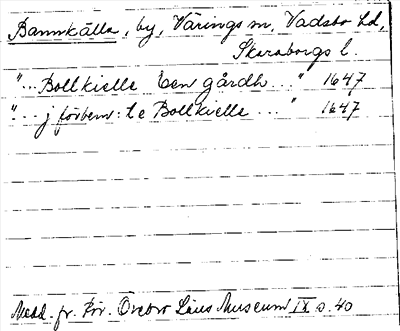 Bannkälla, by, Värings sn, Vadsbo hd,
Skaraborgs l.
"... Bollkielle een gårdh ..." 1647
"... j förbem:te Bollkielle ..." 1647
Medd. fr. För. Örebro Läns Museum IX s. 40